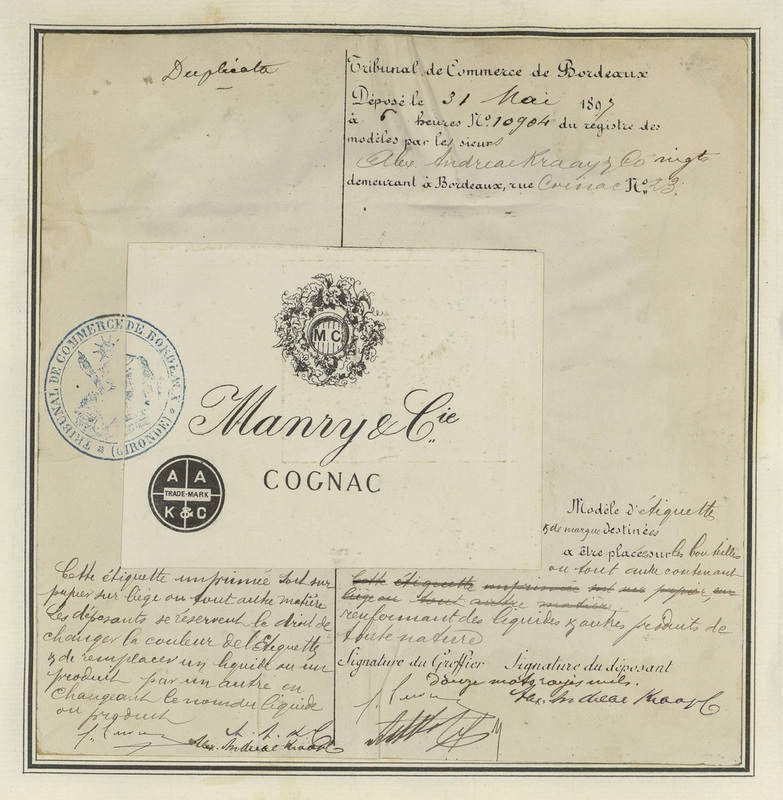 Duplicata
Tribunal de Commerce de Bordeaux
Déposé le 31 Mai 1897
à 6 heures No. 10904 du registre des
modèles par les sieurs
Alex. Andreae Kraay & Co négts
demeurant à Bordeaux, rue No. 23.
TRIBUNAL DE COMMERCE DE BORDEAUX
(GIRONDE)
M.C.
Manry & Cie
COGNAC
A A
TRADE-MARK
K & C
Modèle d'étiquette
& de marque destinées
a être places sur les bouteilles
ou tout autre contenant
Cette étiquette imprimée soit sur
papier sur liège ou tout autre matière
renfermant des liquides & autres produits de
toute nature
Cette étiquette imprimée soit sur
papier sur liège ou tout autre matière
Les déposants se réservent le droit de
changer la couleur de l'Etiquette
& de remplacer un liquide ou un
produit par un autre en
changeant le nom du liquide
ou produit
A. A. & C
Alex. Andreae Kraay & C
Signature du Greffier Signature du déposant
Douze mots rayés nuls.
Alex. Andreae Kraay & C